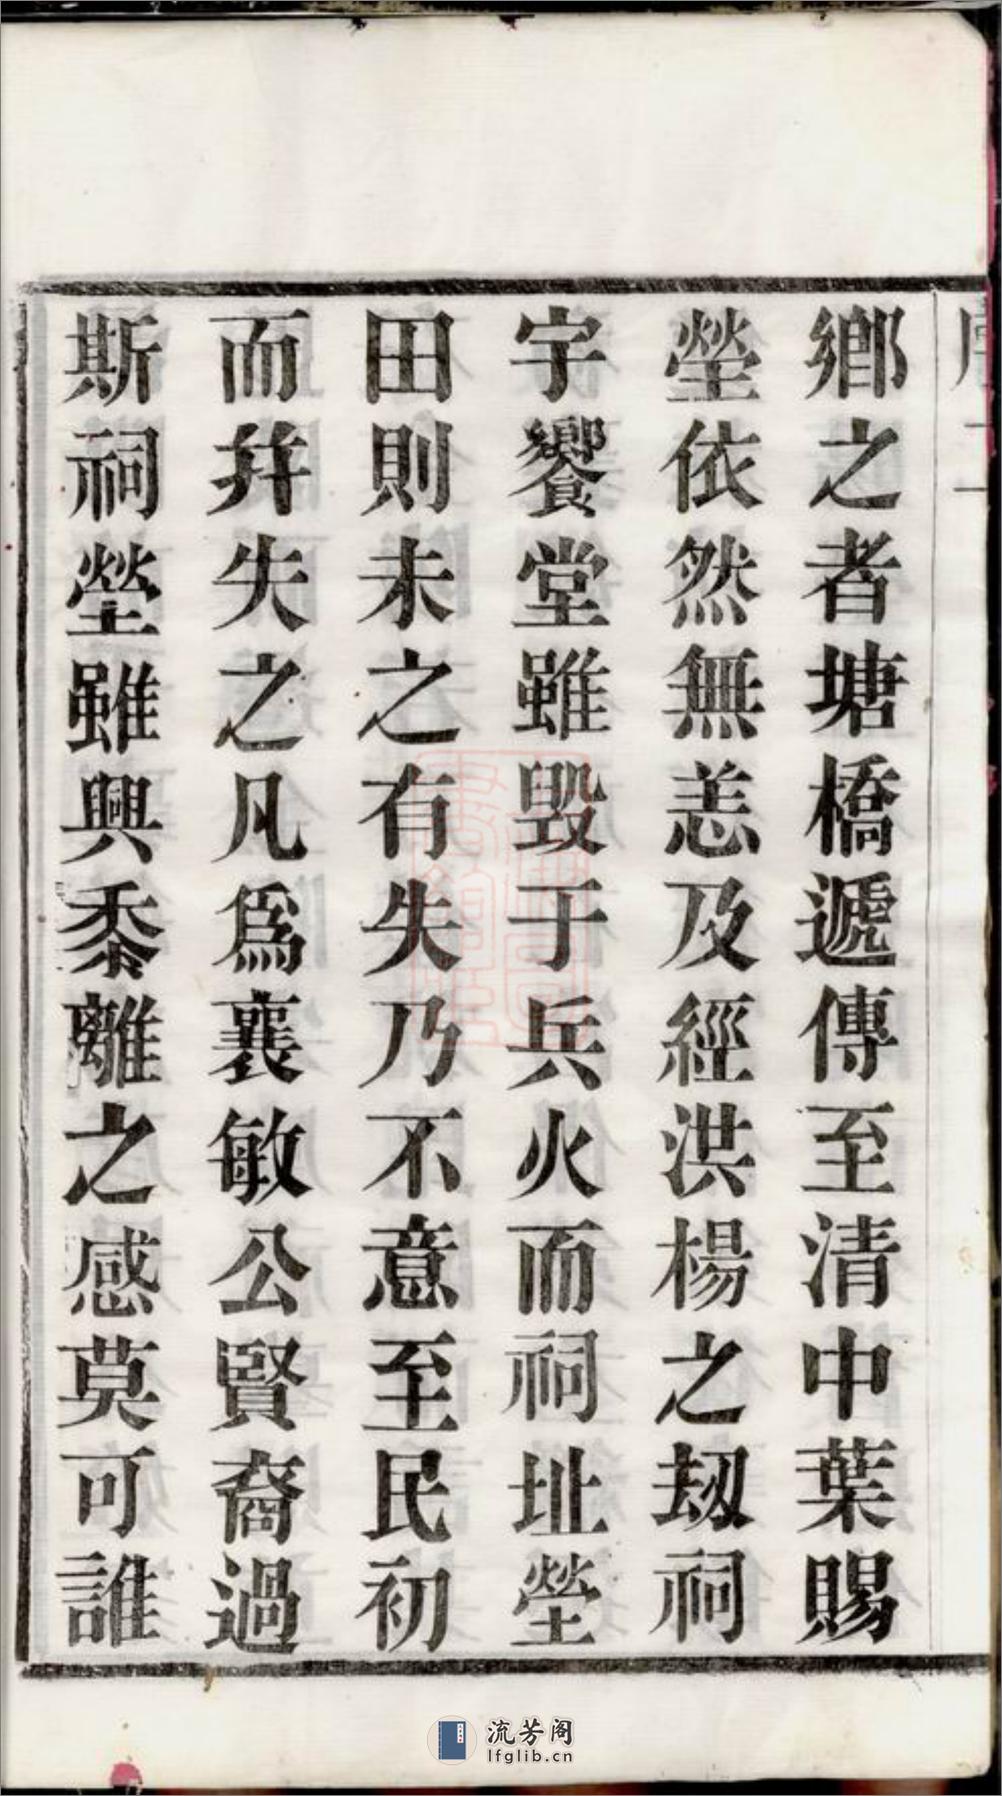 鄉之者塘橋遞傳至清中葉賜
塋依然無恙及經洪楊之刼祠
宇饗堂雖毀于兵火而祠址塋
田則未之有失乃不意至民初
而幷失之凡爲襄敏公賢裔過
斯祠塋雖興黍離之感莫可誰
流芳阁
lfglib.cn